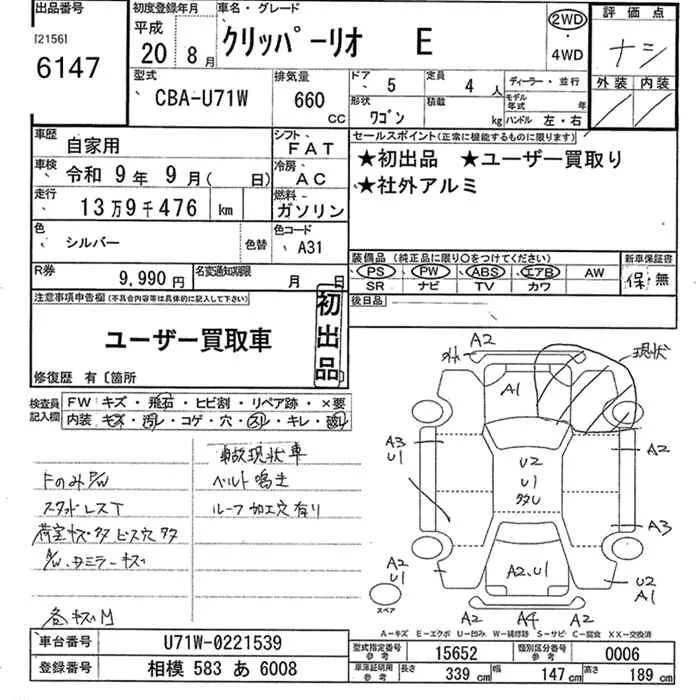 出品番号 初度登録年月 車名・グレード 評価点
[2156] 平成 2WD
6147 20 8月 クリッパーリオ E ナシ
4WD
型式 排気量 ドア 5 定員 4 人 ディーラー・並行 外装 内装
CBA-U71W 660 cc 形状 ワゴン 積載 kg モデル年式 年 ハンドル 左・右
車歴 自家用 シフト FAT セールスポイント(正常に機能するものに限ります)
車検 令和 9年 9月( 日) 冷房 AC ★初出品 ★ユーザー買取り
走行 13万9千476 km 燃料 ガソリン ★社外アルミ
色 シルバー 色替 色コード A31
装備品(純正品に限り○をつけてください) 新車保証書
R券 9,990円 名変通知期限 月 日 PS PW ABS エアB AW 保・無
SR ナビ TV カワ
注意事項申告欄(不具合内容等は具体的に記入して下さい) 後日品
ユーザー買取車 初出品
修復歴 有〔箇所
検査員記入欄 FW キズ・飛石・ヒビ割・リペア跡・×要
内装 キズ・汚レ・コゲ・穴・スレ・キレ・破レ
事故現状車
FのみP/W ベルト鳴き
スタッドレスT ルーフ加工穴有り
荷室キズ多ビス穴多
各キズM
A2
現状
A1
A3
U1
A2
U2
U1
多U
A3
A2
U1
A2.U1
U2
A1
スペア
A2 A4 A2
A-キズ E-エクボ U-凹み W-補修跡 S-サビ C-腐食 XX-交換済
車台番号 U71W-0221539 型式指定番号 参考 15652 類別区分番号 参考 0006
登録番号 相模 583 あ 6008 車庫証明用 参考 長さ 339 cm 幅 147 cm 高さ 189 cm